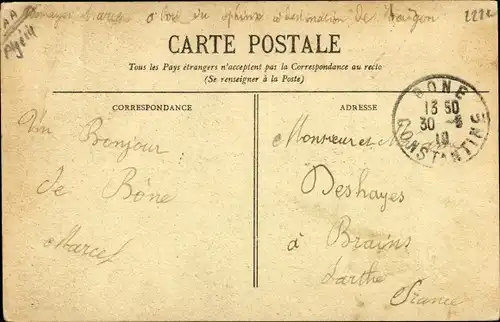 à bord du Sphinx à destination de Saïgon
AA
Algérie
CARTE POSTALE
Tous les Pays étrangers n'acceptent pas la Correspondance au recto
(Se renseigner à la Poste)
CORRESPONDANCE
Un Bonjour
de Bône
Marcel
ADRESSE
BONE
13 50
30 -5
10
CONSTANTINE
Monsieur et
Deshayes
à Brains
Sarthe
France